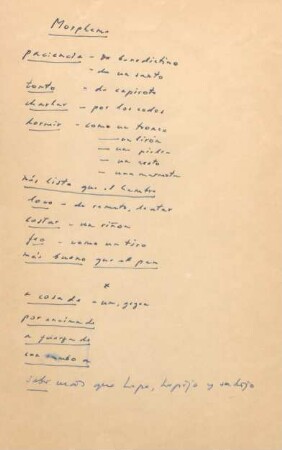 Morphem
paciencia - de benedictino
- de un santo
tonto - de capirote
charlar - por los codos
dormir - como un tronco
— un lirón
— una piedra
— un cesto
— una marmota
más lista que el hambre
loco - de remate, de atar
costar - un riñón
feo - como un tiro
más bueno que el pan
*
a costa de
por encima de
a guisa de
con rumbo a
saber más que Lepe, Lepijo y su hijo